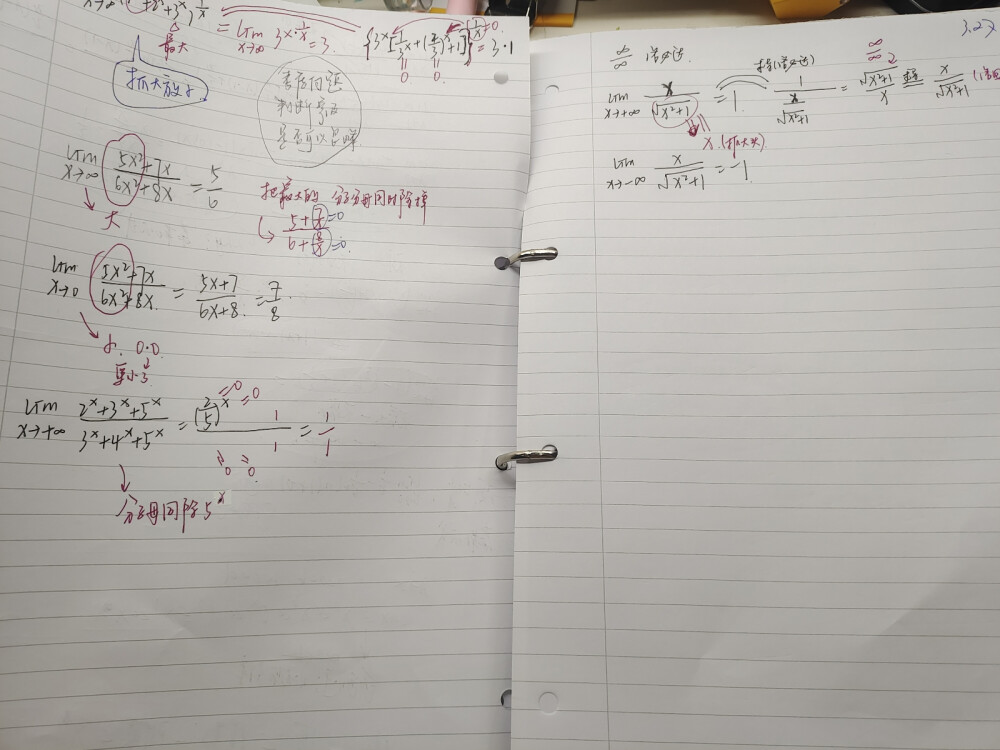 +3ˣ)^(1/x)
= lim x→∞ 3^(x·1/x) = 3.
{3ˣ[1/3ˣ+(2/3)ˣ+1]}^(1/x) = 3·1
=0.
0
0.
最大
抓大放小
考虑问题
判断
是否可以
lim x→∞ (5x²+7x)/(6x²+8x) = 5/6
大
把最大的 分子分母同时除掉
(5+7/x)/(6+8/x)
=0
=0.
lim x→0 (5x²+7x)/(6x²+8x) = (5x+7)/(6x+8) = 7/8
小. 0·0
更小
lim x→+∞ (2ˣ+3ˣ+5ˣ)/(3ˣ+4ˣ+5ˣ) = (2/5)ˣ 1 / 1 = 1/1
=0 =0
=0 =0
分子分母同除5ˣ
3.27
∞/∞ 洛必达.
lim x→+∞ x/√(x²+1) = 1. 1/(x/√(x²+1)) = √(x²+1)/x x/√(x²+1)
(洛必达)
∞/∞
x.(抓大头)
lim x→-∞ x/√(x²+1) = -1.